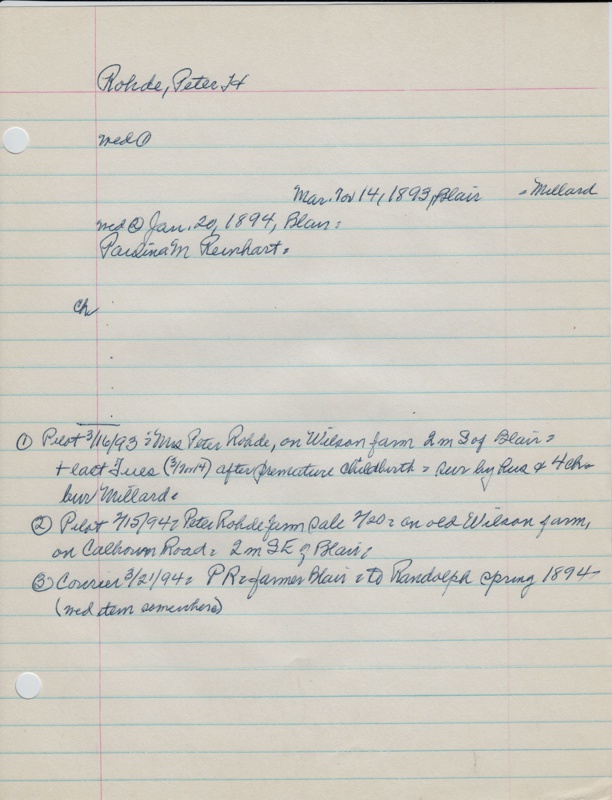 Rohde, Peter H
wed ①
Mar. 14, 1893, Blair = Millard
wed ② Jan. 20, 1894, Blair =
Paulina M Reinhart =
ch
① Pilot 3/16/93 = Mrs Peter Rohde, on Wilson farm 2 m S of Blair =
+ last Tues (3/14) after premature childbirth = sur by hus & 4 ch =
bur Millard =
② Pilot 2/15/94 = Peter Rohde farm sale 2/20 = on old Wilson farm,
on Calhoun Road = 2 m SE of Blair =
③ Courier 3/21/94 = P R = farmer Blair = to Randolph spring 1894
(wed item somewhere)